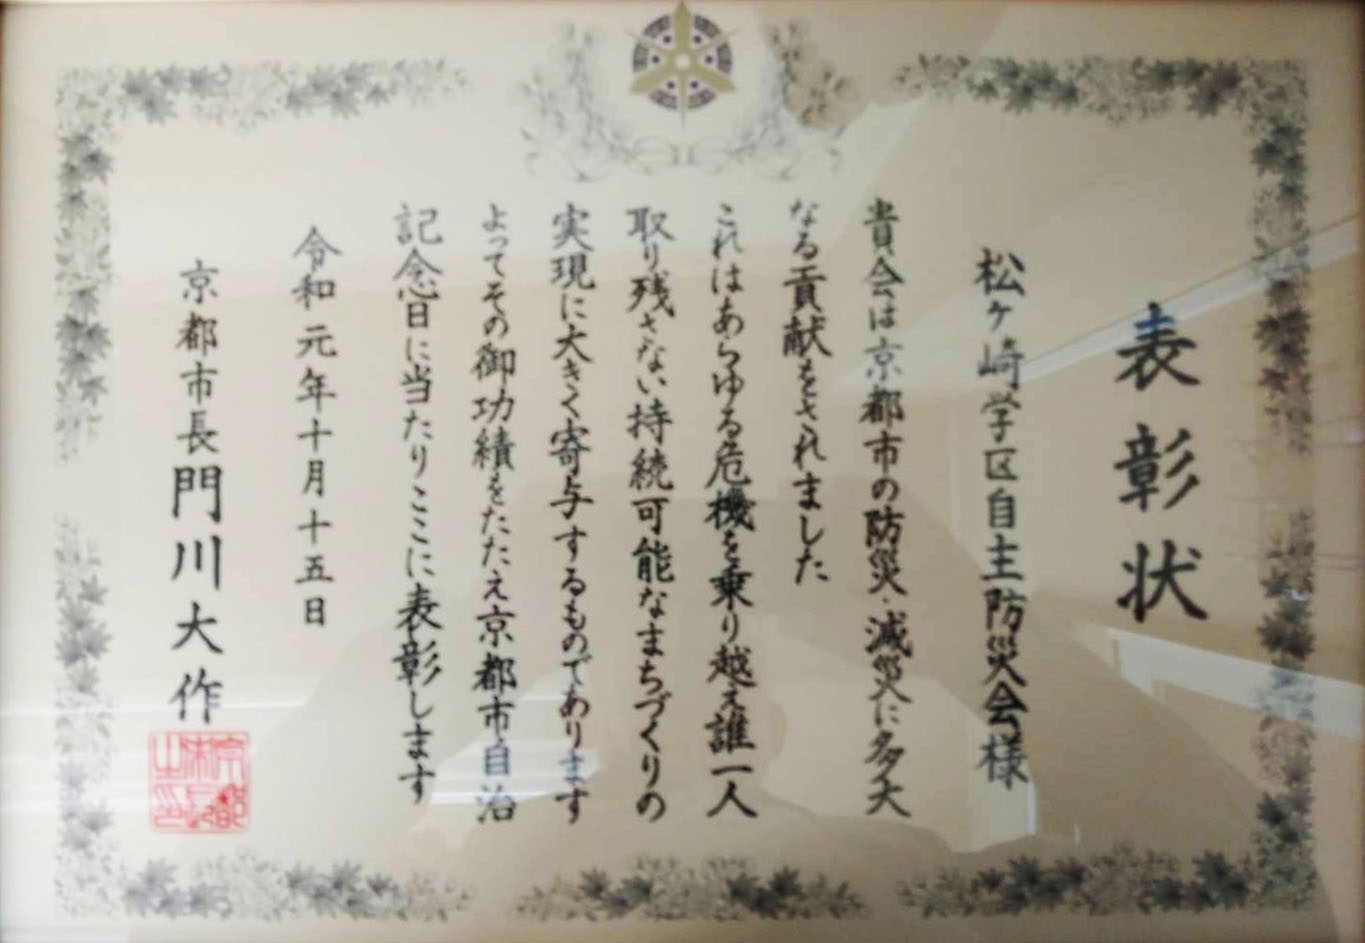 表彰状
松ヶ崎学区自主防災会様
貴会は京都市の防災・減災に多大
なる貢献をされました
これはあらゆる危機を乗り越え誰一人
取り残さない持続可能なまちづくりの
実現に大きく寄与するものであります
よってその御功績をたたえ京都市自治
記念日に当たりここに表彰します
令和元年十月十五日
京都市長門川大作
京都
市長
之印